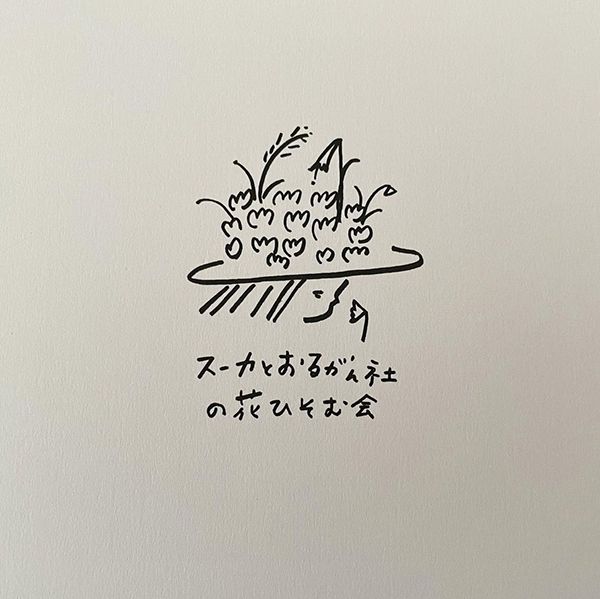 スーカとおるがん社
の花ひそむ会